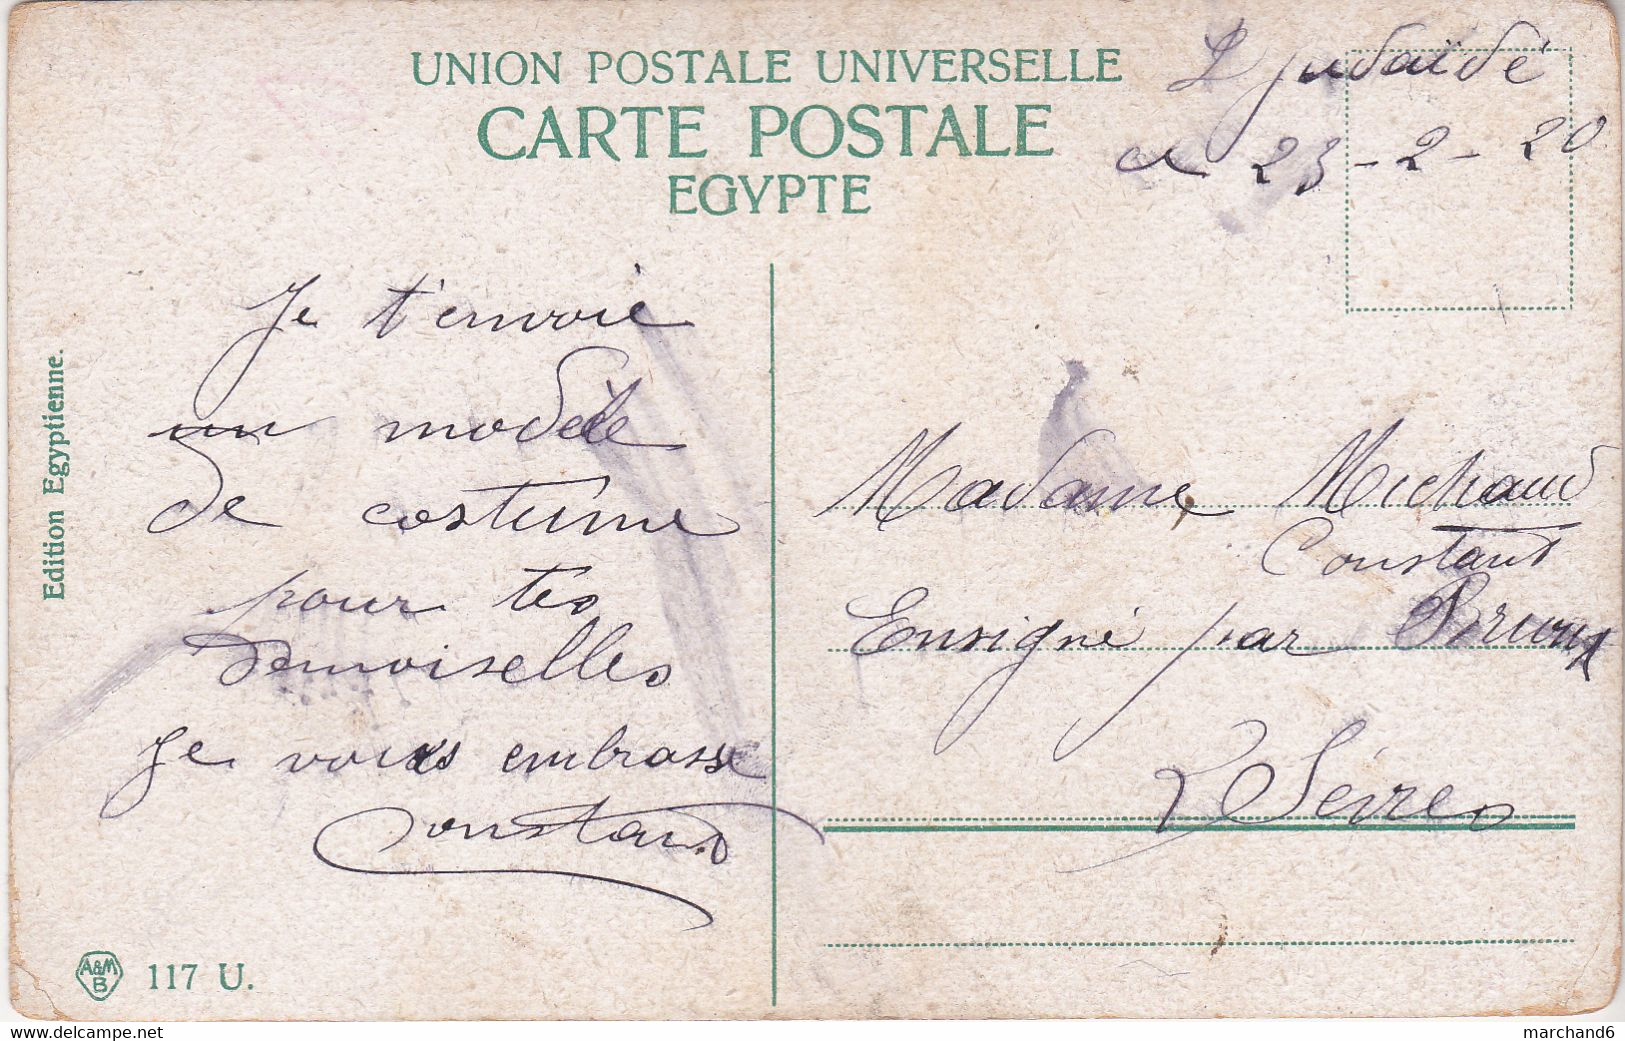 UNION POSTALE UNIVERSELLE
CARTE POSTALE
EGYPTE
Djudaïdé
le 23-2-20
Edition Egyptienne.
Je t'envoie
un modèle
de costume
pour tes
demoiselles
Je vous embrasse
Constant
A&M
B
117 U.
Madame Michaud
Constant
Ensigné par Brioux
2 Sèvres
www.delcampe.net
marchand6